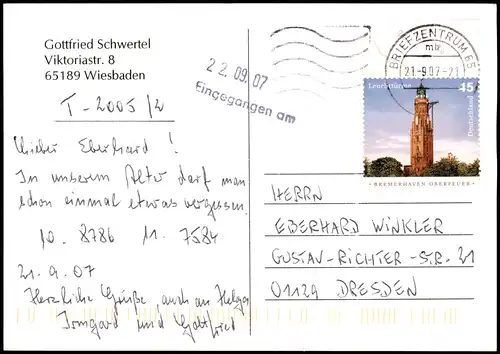 Gottfried Schwertel
Viktoriastr. 8
65189 Wiesbaden
T-2005/2
Lieber Eberhard!
In unserem Alter darf man
schon einmal etwas vergessen.
10. 8786 11. 7584
21.9.07
Herzliche Grüße, auch an Helga
Irmgard und Gottfried
22.09.07
Eingegangen am
BRIEFZENTRUM 65
mb
21-9.07-21
Leuchttürme
45
Deutschland
BREMERHAVEN OBERFEUER
HERRN
EBERHARD WINKLER
GUSTAV-RICHTER-STR. 21
01129 DRESDEN